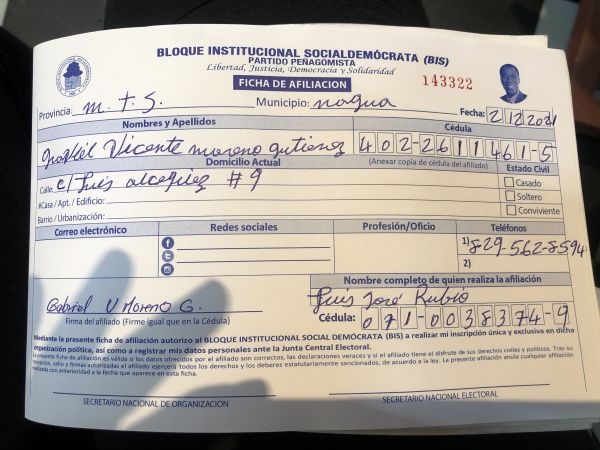 BLOQUE INSTITUCIONAL SOCIALDEMÓCRATA (BIS)
PARTIDO PEÑAGOMISTA
Libertad, Justicia, Democracia y Solidaridad
FICHA DE AFILIACION
143322
Provincia: M.T.S. Municipio: nagua Fecha: 2/12/2021
Nombres y Apellidos Cédula
Vicente moreno gutierez 402-2611461-5
Domicilio Actual (Anexar copia de cédula del afiliado) Estado Civil
Calle: c/ Luis #9
Casado
#Casa / Apt. / Edificio:
Soltero
Barrio / Urbanización:
Conviviente
Correo electrónico Redes sociales Profesión/Oficio Teléfonos
1) 829-562-8594
2)
Nombre completo de quien realiza la afiliación
Gabriel V Moreno G. Luis José Rubio
Firma del afiliado (Firme igual que en la Cédula) Cédula: 071-0038374-9
Mediante la presente ficha de afiliación autorizo al BLOQUE INSTITUCIONAL SOCIAL DEMÓCRATA (BIS) a realizar mi inscripción única y exclusiva en dicha
organización política, así como a registrar mis datos personales ante la Junta Central Electoral.
La presente ficha de afiliación es válida si los datos ofrecidos por el afiliado son correctos, las declaraciones veraces y si el afiliado tiene el disfrute de sus derechos civiles y políticos. Tras su
recepción, sello y firmas autorizadas el afiliado ejercerá todos los derechos y los deberes estatutariamente sancionados, de acuerdo a la ley. La presente afiliación anula cualquier afiliación
realizada con anterioridad a la fecha que aparece en esta ficha.
SECRETARIO NACIONAL DE ORGANIZACIÓN SECRETARIO NACIONAL ELECTORAL